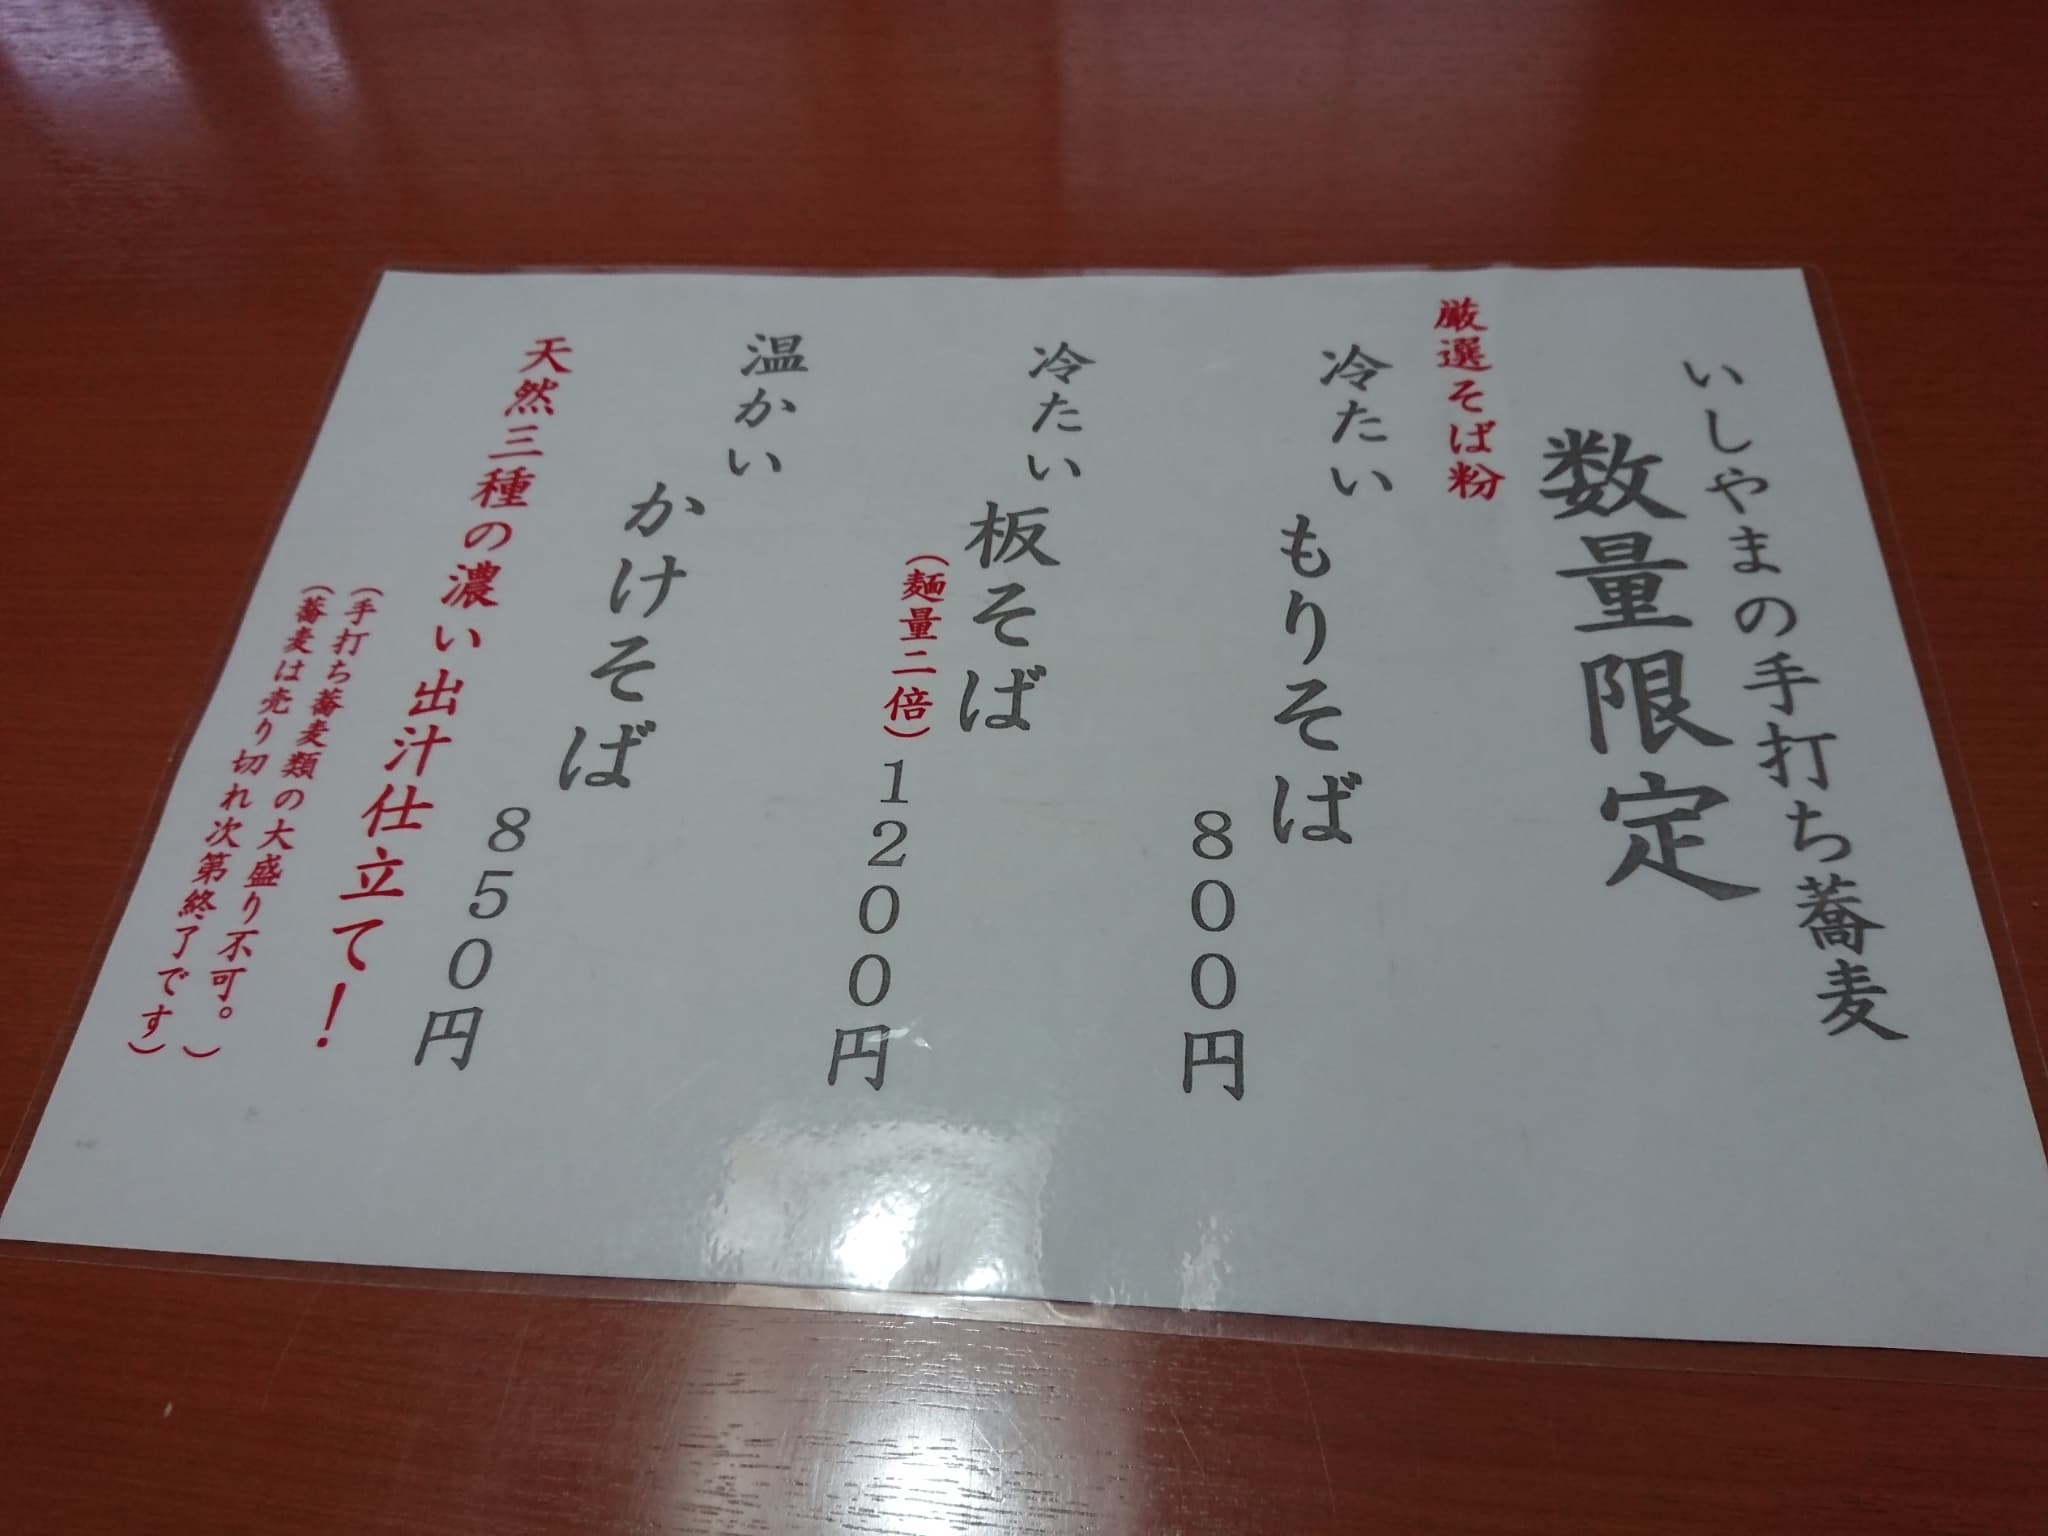 いしやまの手打ち蕎麦
数量限定
厳選そば粉
冷たい もりそば ８００円
冷たい 板そば (麺量二倍) １２００円
温かい かけそば ８５０円
天然三種の濃い出汁仕立て！
(手打ち蕎麦類の大盛り不可。)
(蕎麦は売り切れ次第終了です)